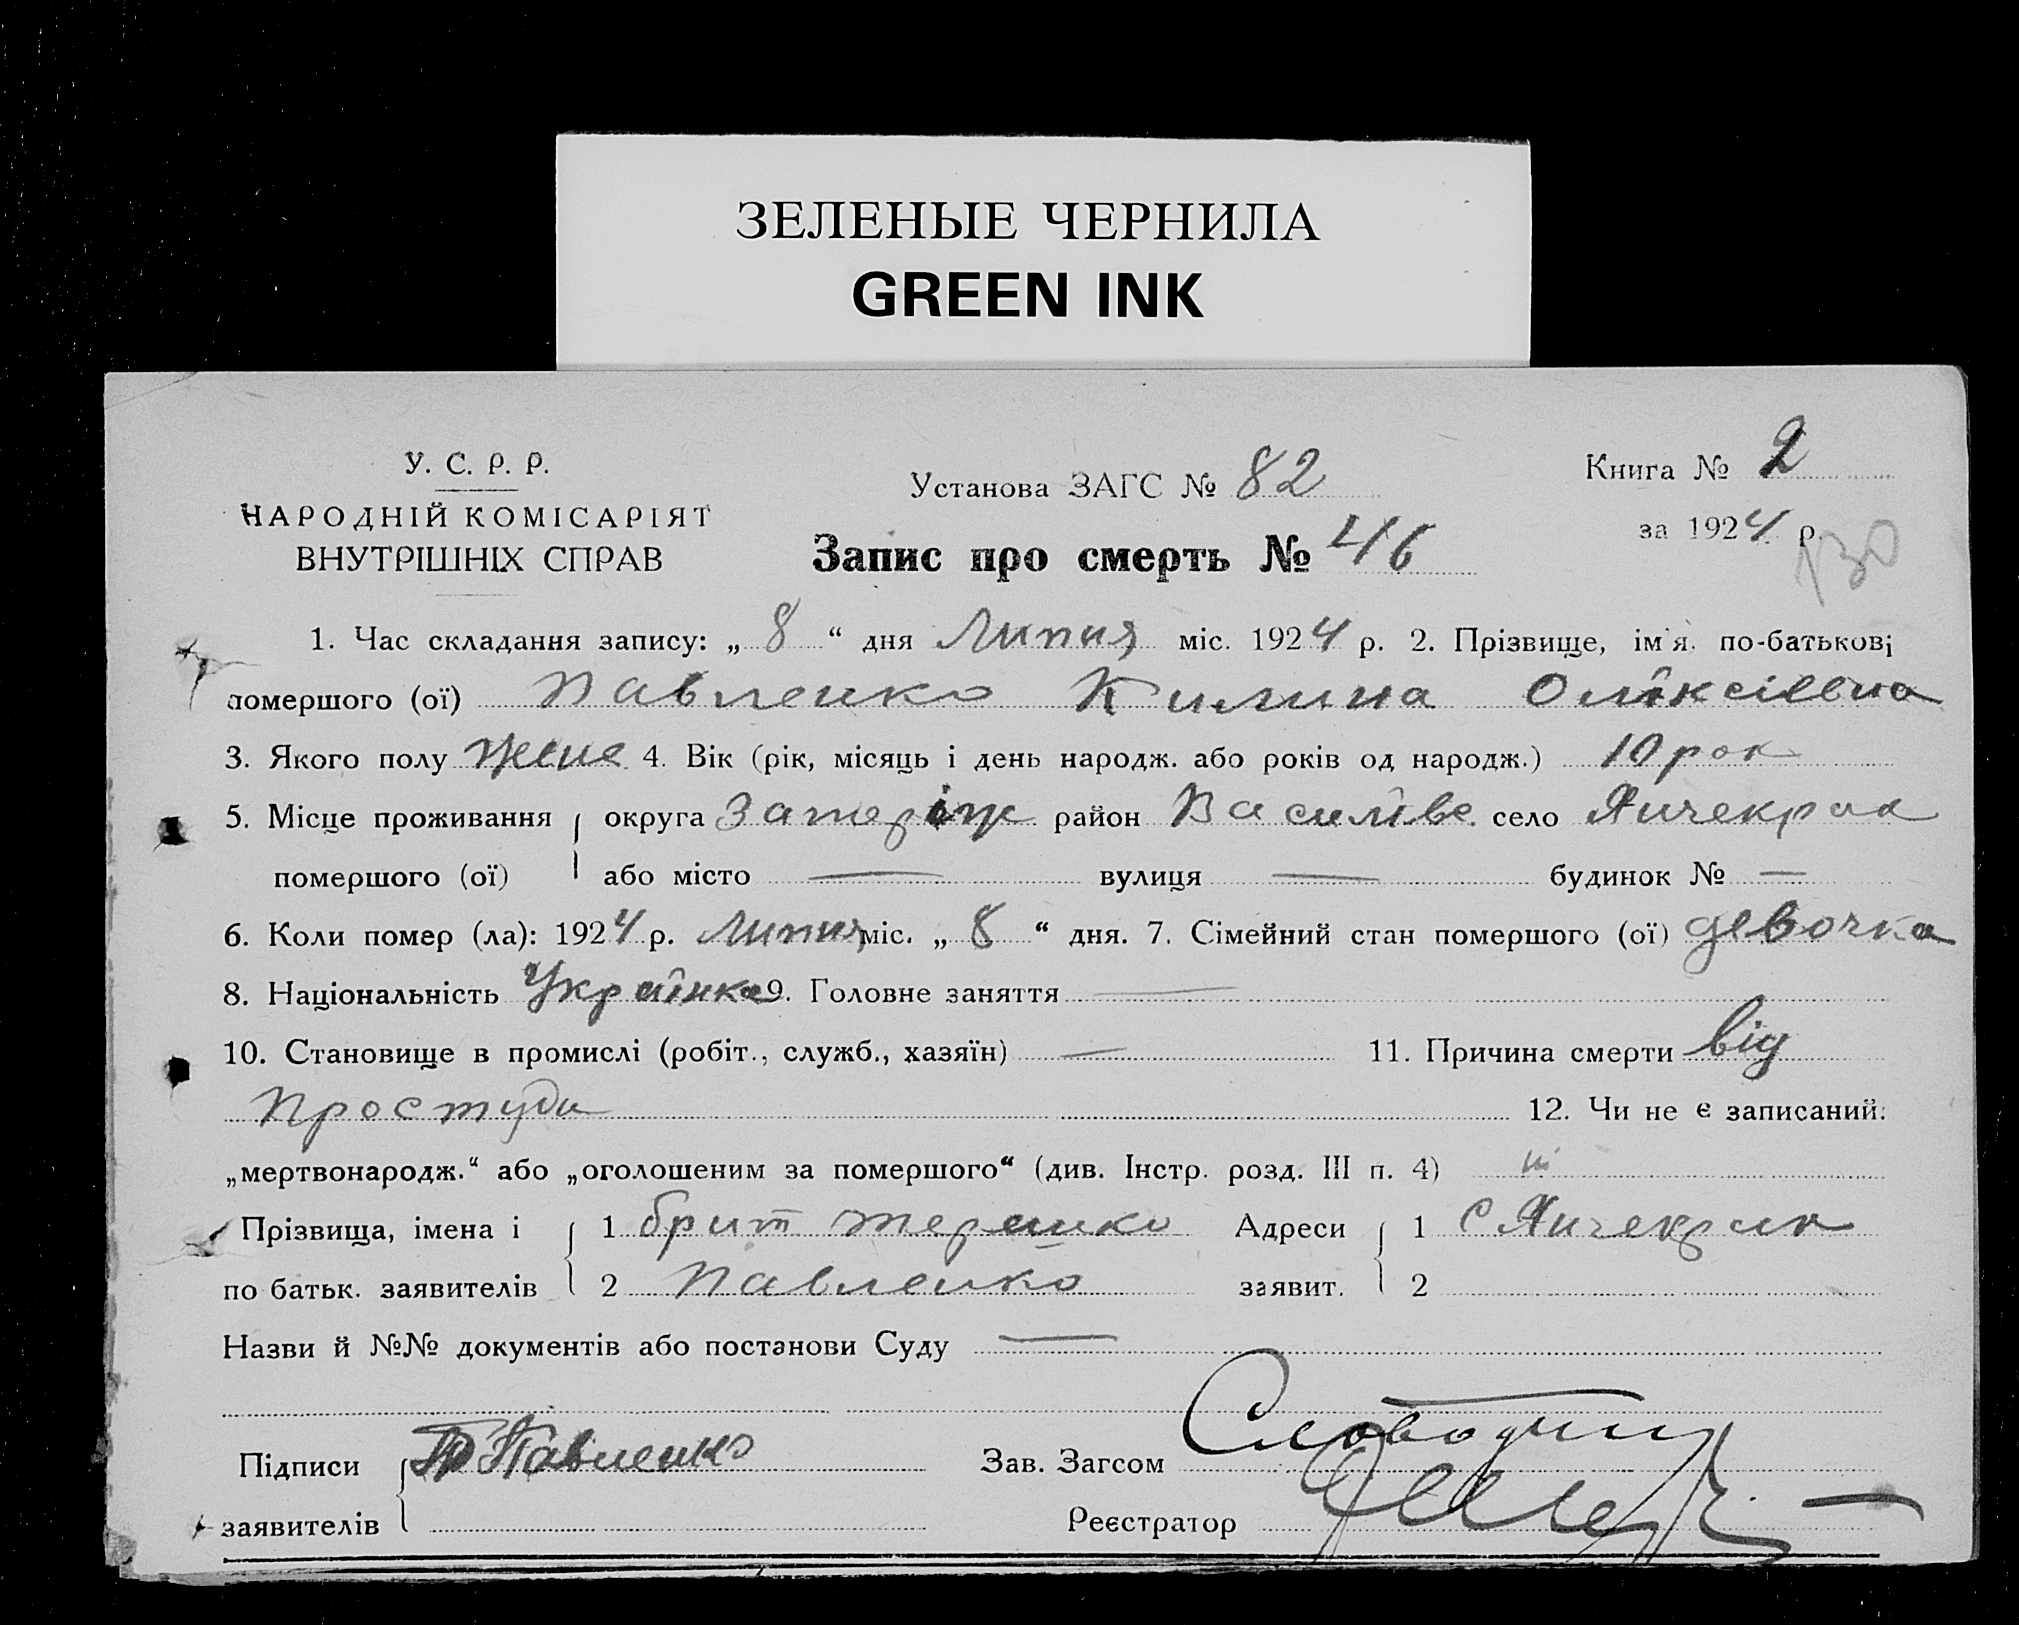 ЗЕЛЕНЫЕ ЧЕРНИЛА
GREEN INK
У. С. Р. Р.
НАРОДНІЙ КОМІСАРІЯТ
ВНУТРІШНІХ СПРАВ
Установа ЗАГС № 82
Запис про смерть № 46
Книга № 2
за 1924 р.
130
1. Час складання запису: „ 8 “ дня Липня міс. 1924 р. 2. Прізвище, ім'я, по-батькові
помершого (ої) Павленко Килина Олїксіевна
3. Якого полу жене 4. Вік (рік, місяць і день народж. або років од народж.) 10 рок
5. Місце проживання округа Запоріж район Василїве. село Янчекрак
помершого (ої) або місто — вулиця — будинок № —
6. Коли помер (ла): 1924 р. Липня міс. „ 8 “ дня. 7. Сімейний стан помершого (ої) девочка
8. Національність Українка 9. Головне заняття —
10. Становище в промислі (робіт., служб., хазяїн) — 11. Причина смерти від
простуди 12. Чи не є записаний.
„мертвонародж.“ або „оголошеним за помершого“ (див. Інстр. розд. III п. 4) ні
Прізвища, імена і 1 брат Терешко Адреси 1 с Янчекрак
по батьк. заявителів 2 Павленко заявит. 2
Назви й №№ документів або постанови Суду —
Підписи Павленко Зав. Загсом
заявителів Реєстратор